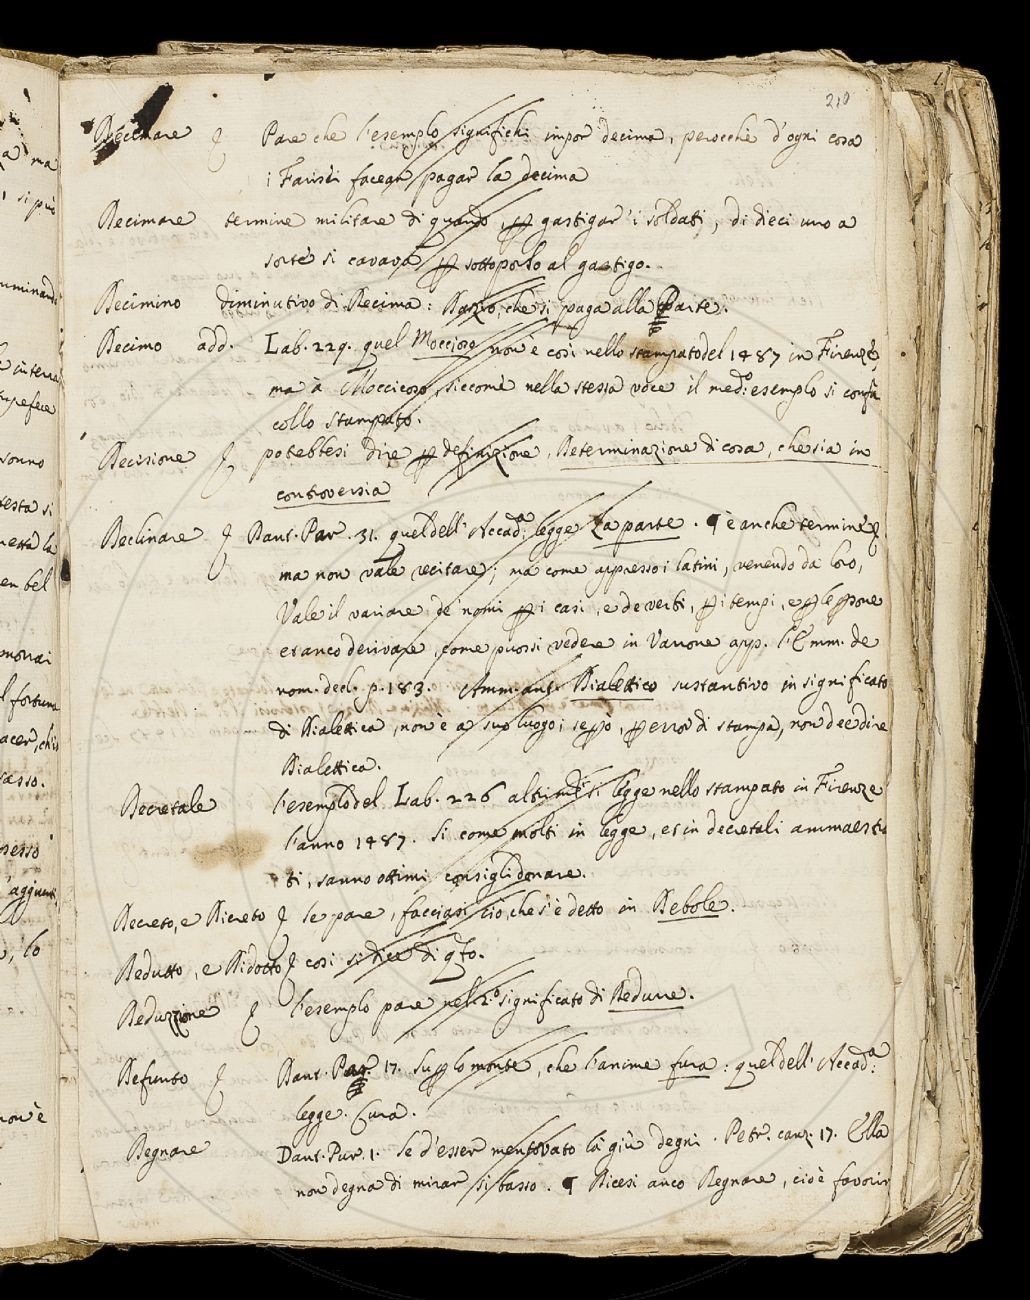 210
Decimare § Pare che l'esemplo significhi impor decima, perocchè d'ogni cosa
i Farisei facean pagar la decima
Decimare termine militare di quando, per gastigar i soldati, di dieci uno a
sorte si cavava per sottoporlo al gastigo.
Decimino diminutivo di Decima: Dazio, che si paga alla Parte.
Decimo add. Lab. 229. quel Moccioso non è così nello stampato del 1487 in Firenze,
ma à Moccicoso, siccome nella stessa voce il med.º esemplo si confà
collo stampato.
Decisione § potebbesi dire per definizione, Determinazione di cosa, che sia in
controversia
Declinare § Dant. Par. 31. quel dell' Accad.ª legge La parte. ¶ è anche termine
ma non vale recitare; ma come appresso i latini, venendo da loro,
Vale il variare de' nomi per i casi, e de verbi, per i tempi, e per le persone
et anco derivare, come puossi vedere in Varrone app. l'Emm. de
nom. decl. p. 183. Amm. ant. Dialettico sustantivo in significato
di Dialettica, non è a suo luogo; se però, per error di stampa, non dee dire
Dialettica.
Decretale l'esemplo del Lab. 226 altrimenti legge nello stampato in Firenze
l'anno 1487. Si come molti in legge, et in decretali ammaestra
ti, sanno ottimi consigli donare.
Decreto, e Dicreto § se pare, facciasi ciò, che s'è detto in Debole.
Dedutto, e Didotto § così si dice di q.to.
Deduzzione § l'esemplo pare nel 2.º significato di Dedurre.
Defunto § Dant. Par. 17. Su per lo monte, che l'anime fura: quel dell' Accad.ª:
legge. Cura.
Degnare Dant. Pur. 1. Se d'esser mentovato là giù degni. Petr. canz. 17. Ella
non degna di mirar sì basso. ¶ Dicesi anco Degnare, cioè favorir